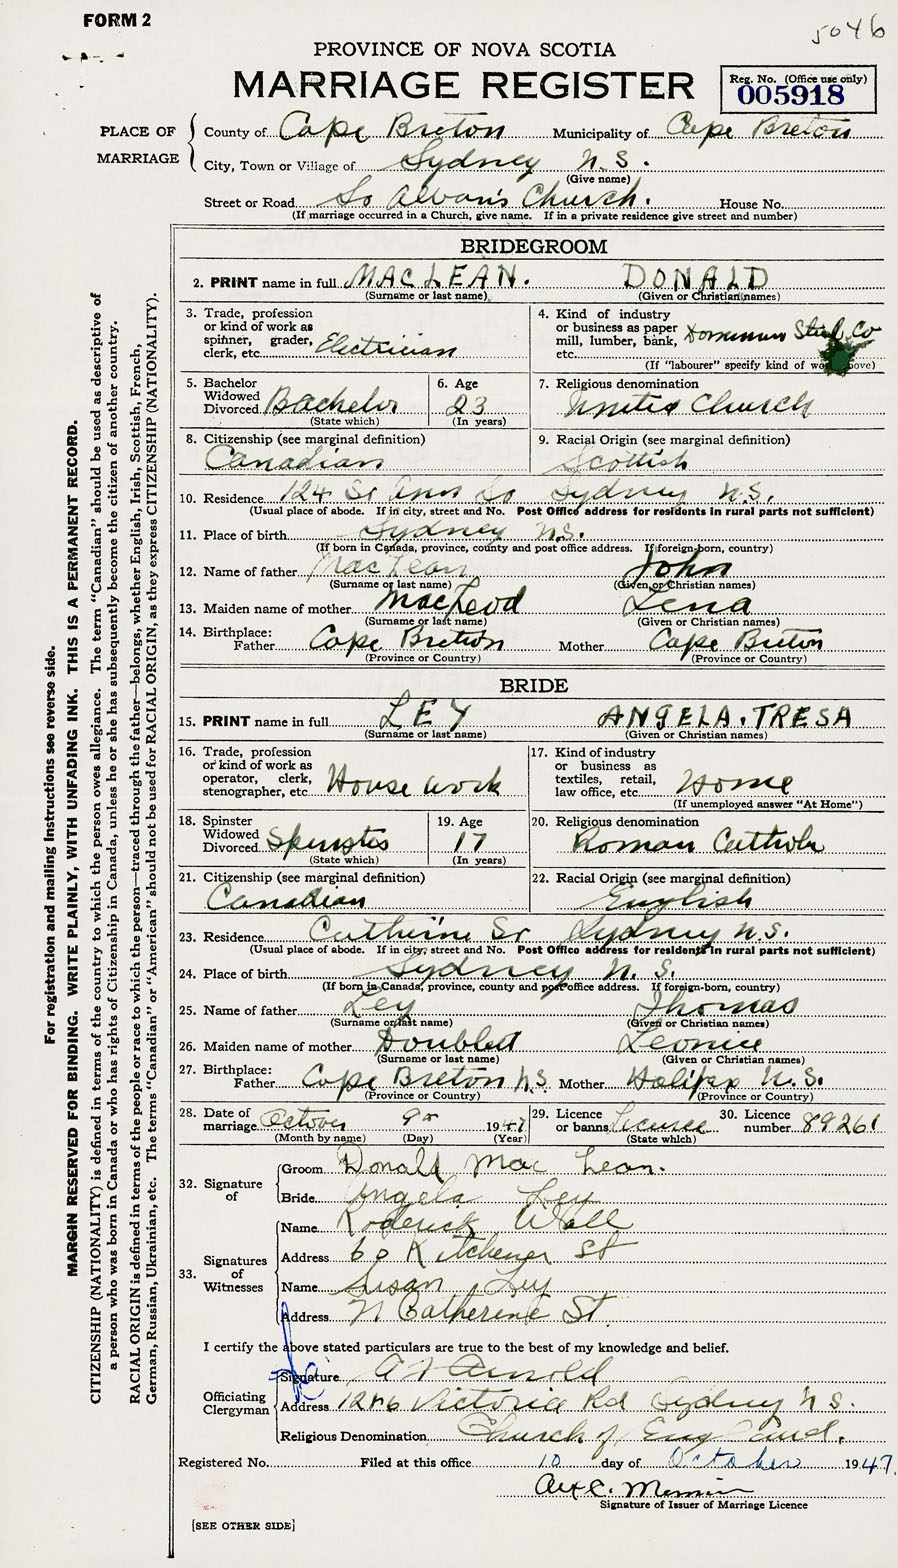 FORM 2
5046
PROVINCE OF NOVA SCOTIA
MARRIAGE REGISTER
Reg. No. (Office use only)
005918
PLACE OF MARRIAGE
County of Cape Breton Municipality of Cape Breton
City, Town or Village of Sydney N.S.
(Give name)
Street or Road So Alban's Church. House No.
(If marriage occurred in a Church, give name. If in a private residence give street and number)
BRIDEGROOM
2. PRINT name in full MACLEAN. DONALD
(Surname or last name) (Given or Christian names)
3. Trade, profession or kind of work as spinner, grader, clerk, etc. Electrician
4. Kind of industry or business as paper mill, lumber, bank, etc. Dominion Steel Co
(If "labourer" specify kind of work above)
5. Bachelor Widowed Divorced Bachelor
(State which)
6. Age 23
(In years)
7. Religious denomination
United Church
8. Citizenship (see marginal definition)
Canadian
9. Racial Origin (see marginal definition)
Scottish
10. Residence 124 St Ann So Sydney N.S.
(Usual place of abode. If in city, street and No. Post Office address for residents in rural parts not sufficient)
11. Place of birth Sydney N.S.
(If born in Canada, province, county and post office address. If foreign-born, country)
12. Name of father MacLean John
(Surname or last name) (Given or Christian names)
13. Maiden name of mother MacLeod Lena
(Surname or last name) (Given or Christian names)
14. Birthplace: Father Cape Breton Mother Cape Breton
(Province or Country) (Province or Country)
BRIDE
15. PRINT name in full LEY ANGELA. TRESA
(Surname or last name) (Given or Christian names)
16. Trade, profession or kind of work as operator, clerk, stenographer, etc House work
17. Kind of industry or business as textiles, retail, law office, etc. Home
(If unemployed answer "At Home")
18. Spinster Widowed Divorced Spinster
(State which)
19. Age 17
(In years)
20. Religious denomination
Roman Catholic
21. Citizenship (see marginal definition)
Canadian
22. Racial Origin (see marginal definition)
English
23. Residence Catherine St Sydney N.S.
(Usual place of abode. If in city, street and No. Post Office address for residents in rural parts not sufficient)
24. Place of birth Sydney N. S.
(If born in Canada, province, county and post office address. If foreign-born, country)
25. Name of father Ley Thomas
(Surname or last name) (Given or Christian names)
26. Maiden name of mother Leonice
(Surname or last name) (Given or Christian names)
27. Birthplace: Father Cape Breton N.S. Mother Halifax N.S.
(Province or Country) (Province or Country)
28. Date of marriage October 9th 1947
(Month by name) (Day) (Year)
29. Licence or banns License
(State which)
30. Licence number 89261
32. Signature of
Groom Donald Mac Lean.
Bride Angela Ley
33. Signatures of Witnesses
Name Roderick Wall
Address 60 Kitchener St
Name Susan Ley
Address 71 Catherine St.
I certify the above stated particulars are true to the best of my knowledge and belief.
Officiating Clergyman
Signature A F Arnold
Address Victoria Rd Sydney N S.
Religious Denomination Church of England.
Registered No. Filed at this office 10 day of October 1947.
Signature of Issuer of Marriage Licence
[SEE OTHER SIDE]
For registration and mailing instructions see reverse side.
MARGIN RESERVED FOR BINDING. WRITE PLAINLY, WITH UNFADING INK. THIS IS A PERMANENT RECORD.
CITIZENSHIP (NATIONALITY) is defined in terms of the country to which the person owes allegiance. The term "Canadian" should be used as descriptive of
a person who was born in Canada or who has rights of Citizenship in Canada, unless he or she has subsequently become the citizen of another country.
RACIAL ORIGIN is defined in terms of the people or race to which the person—traced through the father—belongs, whether English, Irish, Scottish, French,
German, Russian, Ukrainian, etc. The terms "Canadian" or "American" should not be used for RACIAL ORIGIN, as they express CITIZENSHIP (NATIONALITY).